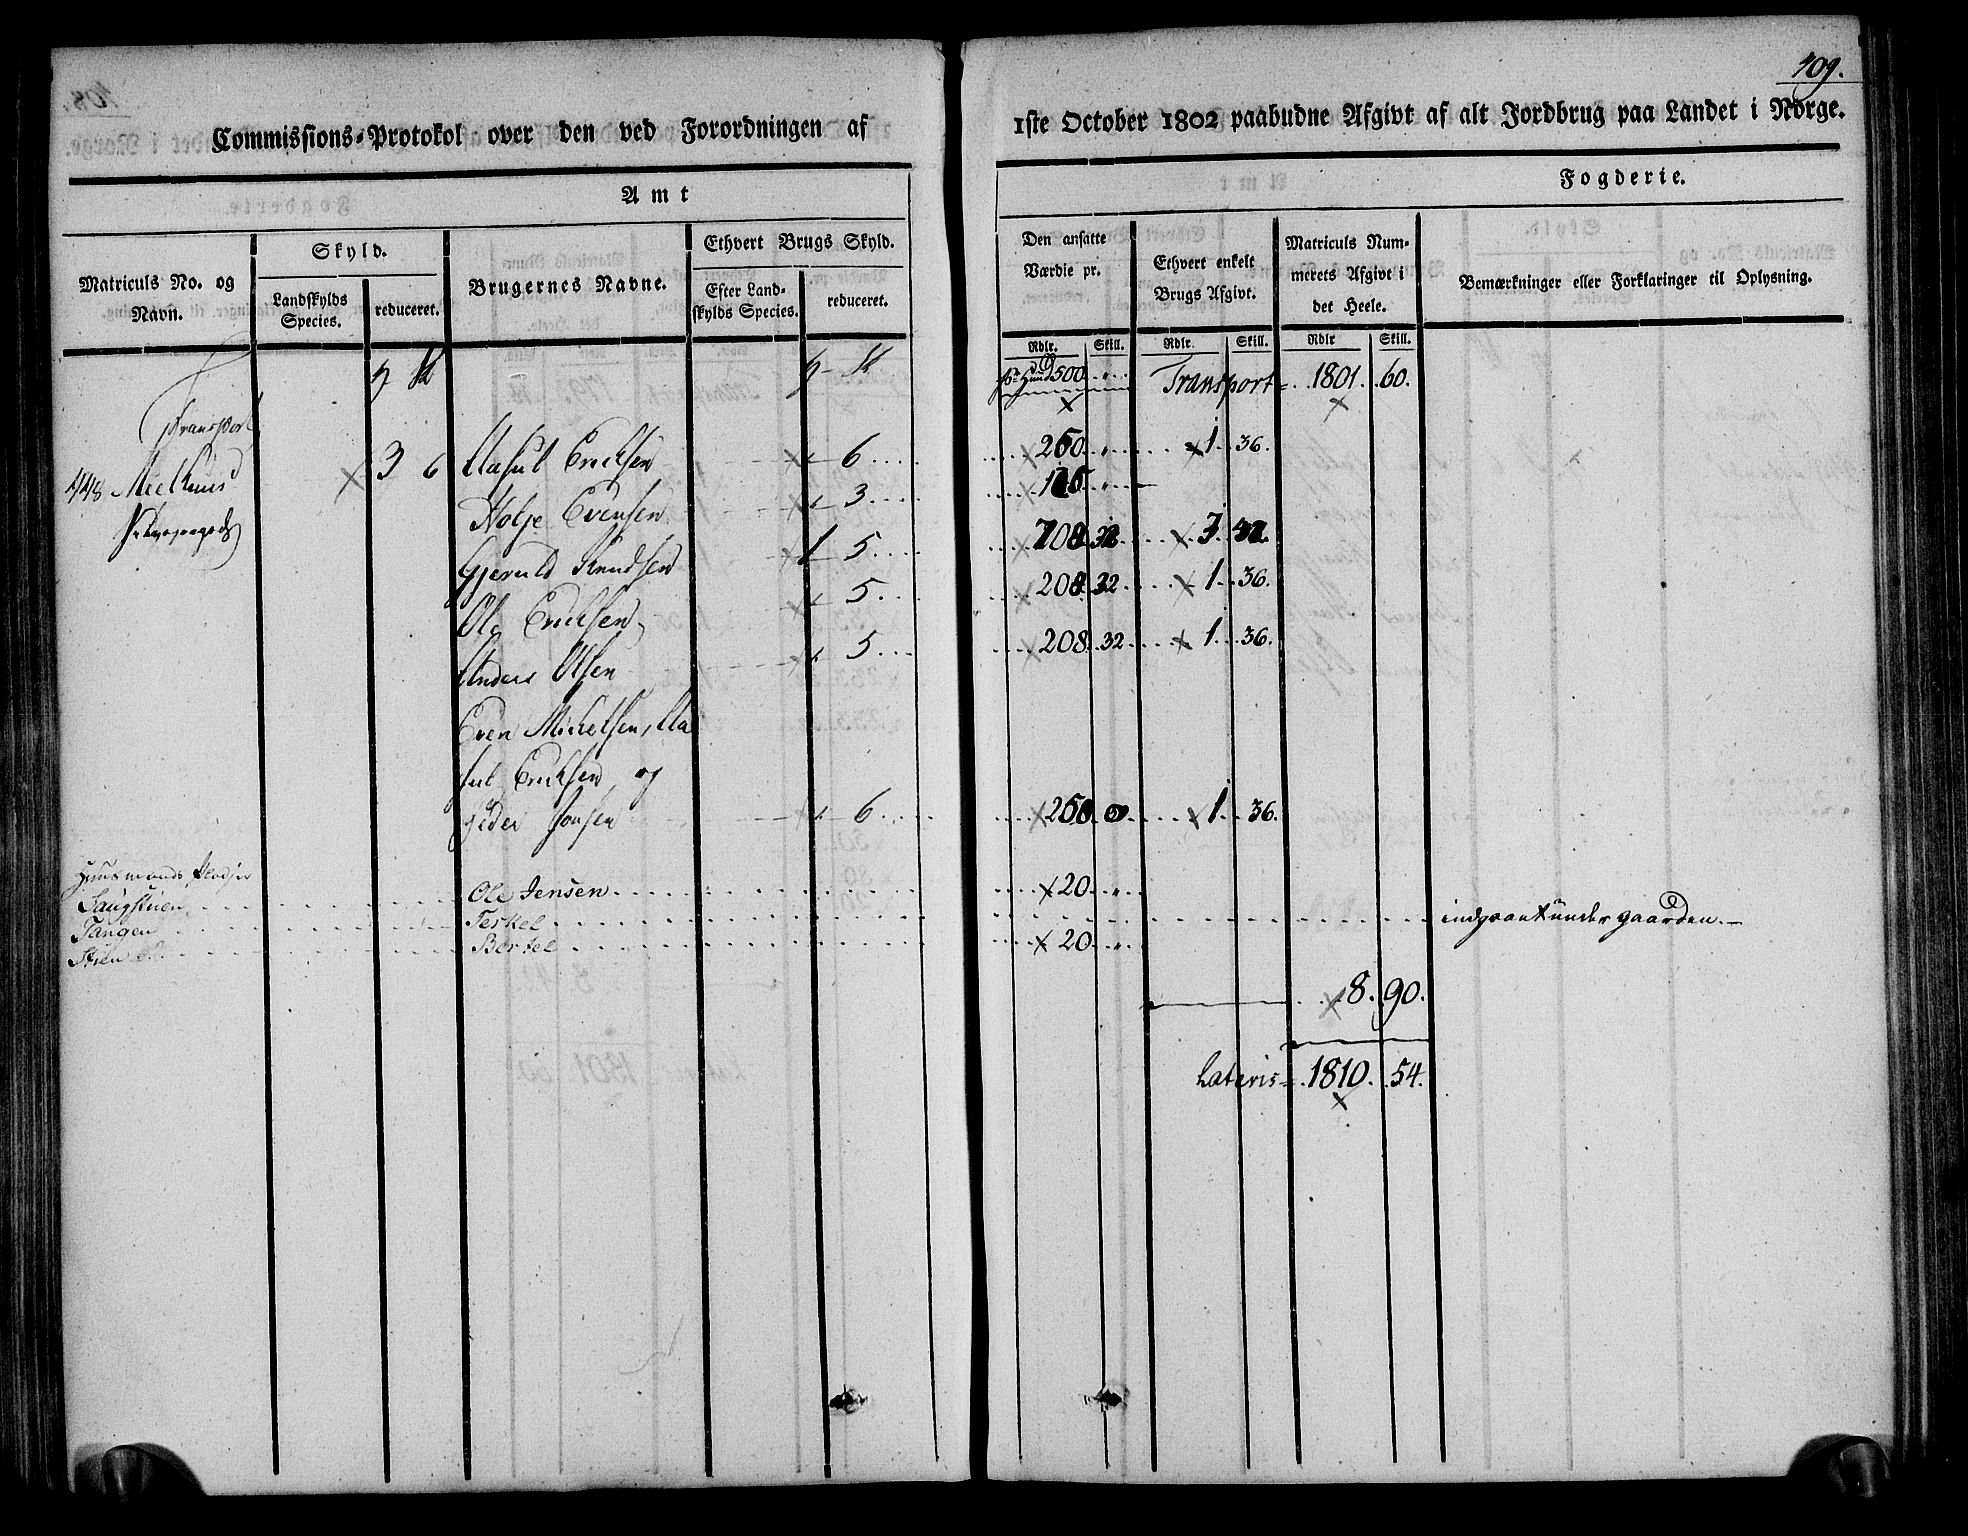 109.
Commissions-Protokol over den ved Forordningen af
1ste October 1802 paabudne Afgivt af alt Jordbrug paa Landet i Norge.
Amt
Fogderie.
Matriculs No. og Navn.
Skyld.
Landskylds Species.
reduceret.
Brugernes Navne.
Ethvert Brugs Skyld.
Efter Landskylds Species.
reduceret.
Den ansatte Værdie pr.
Rdlr. Skill.
Ethvert enkelt Brugs Afgivt.
Rdlr. Skill.
Matriculs Nummerets Afgivt i det Heele.
Rdlr Skill.
Bemærkninger eller Forklaringer til Oplysning.
500 Transport 1801. 60.
Transport
448 Mælhuus 3 6 Aasul Erichsen 6 250 1. 36.
Holje Evensen 3
Gjeruld Knudsen 1 5 32
Ole Erichsen 5 208 32 1. 36.
Anders Olsen 5 208. 32 1. 36.
Even Michelsen, Aa
sul Erichsen og
Peder Jonsen 6 250 0 1. 36.
Huusmands Pladser
Laugstuen Ole Jensen 20
Tangen Terkel indgaar under gaarden.
Stuen Berkel 20
8. 90.
Lateris 1810. 54.